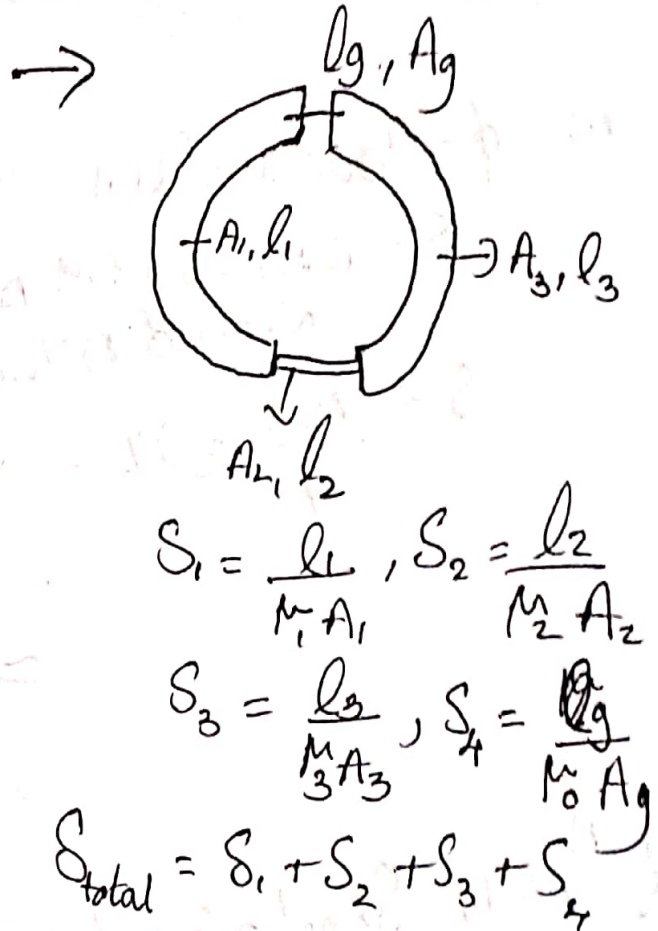 → lg, Ag
A1, l1
→ A3, l3
A2, l2
S1 = l1 / μ1 A1 , S2 = l2 / μ2 A2
S3 = l3 / μ3 A3 , S4 = lg / μ0 Ag
Stotal = S1 + S2 + S3 + S4